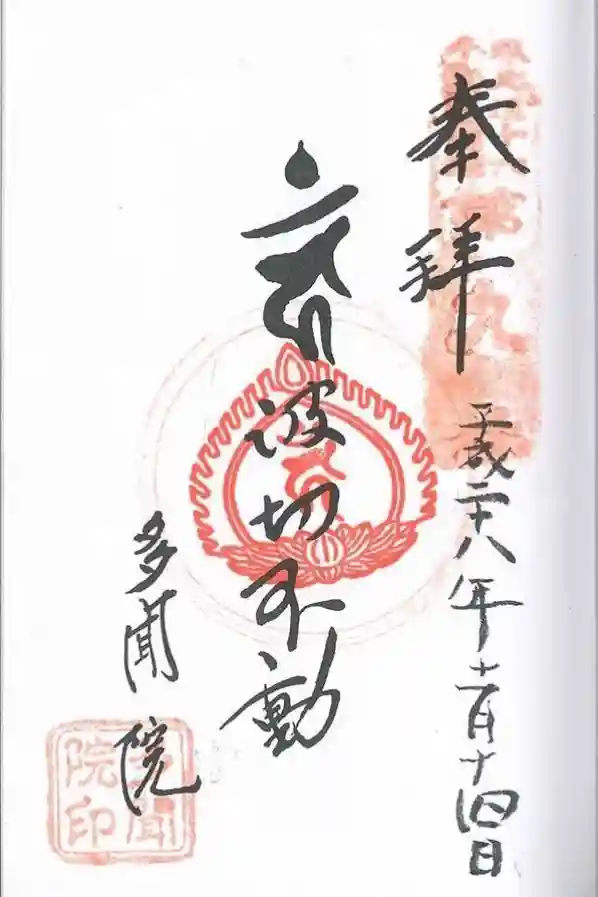 奉拝
平成二十八年十一月十四日
波切不動
多聞院
多聞
院印